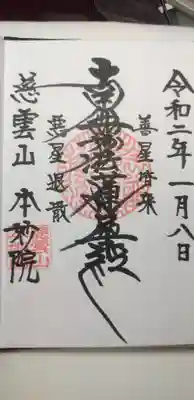 令和二年一月八日
善星皆来
南無妙法蓮華経
悪星退散
慈雲山 本妙院